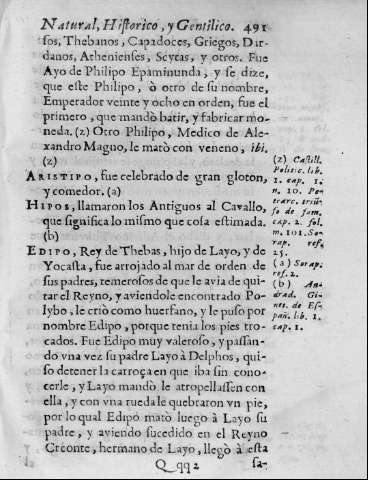 Natural, Historico, y Gentilico. 491
sos, Thebanos, Capadoces, Griegos, Dar-
danos, Athenienses, Scytas, y otros. Fue
Ayo de Philipo Epaminunda, y se dize,
que este Philipo, ò otro de su nombre,
Emperador veinte y ocho en orden, fue el
primero, que mandò batir, y fabricar mo-
neda. (2) Otro Philipo, Medico de Ale-
xandro Magno, le matò con veneno, ibi.
(2)
ARISTIPO, fue celebrado de gran gloton,
y comedor. (a)
HIPOS, llamaron los Antiguos al Cavallo,
que significa lo mismo que cosa estimada.
(b)
EDIPO, Rey de Thebas, hijo de Layo, y de
Yocasta, fue arrojado al mar de orden de
sus padres, temerosos de que le avia de qui-
tar el Reyno, y aviendole encontrado Po-
lybo, le criò como huerfano, y le puso por
nombre Edipo, porque tenia los pies tro-
cados. Fue Edipo muy valeroso, y passan-
do vna vez su padre Layo à Delphos, qui-
so detener la carroça en que iba sin cono-
cerle, y Layo mandò le atropellassen con
ella, y con vna rueda le quebraron vn pie,
por lo qual Edipo matò luego à Layo su
padre, y aviendo sucedido en el Reyno
Creonte, hermano de Layo, llegò à esta
Qqq2 sa-
(2) Castill.
Politic. lib.
1. cap. 1.
n. 10. Pe-
trarc. triũ-
fo de fam.
cap. 2. fol.
m. 101. So-
rap. ref.
25.
(a) Sorap.
ref. 2.
(b) An-
drad. Gi-
net. de Es-
pañ. lib. 1.
cap. 1.